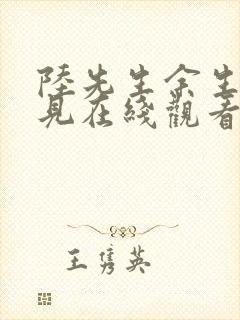 陸先生余生
見在綫觀看
王隽英